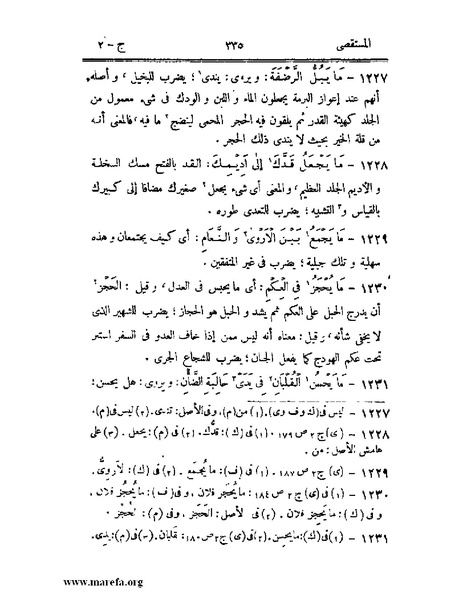 المستقصى ٣٣٥ ج - ٢
١٢٢٧ - مَا يَبُلُّ الرَّضْفَةَ: ويروى: يندى¹؛ يضرب للبخيل، وأصله
أنهم عند إعواز البرمة يجعلون الماء واللبن والودك فى شىء معمول من
الجلد كهيئة القدر ثم يلقون فيه الحجر المحمى لينضج² ما فيه، فالمعنى أنه
من قلة الخير بحيث لا يندى ذلك الحجر.
١٢٢٨ - مَا يَجْعَلُ قَدَّكَ¹ إِلَى أَدِيمِكَ: القد بالفتح مسك السخلة
والأديم الجلد العظيم، والمعنى أى شىء يجعل² صغيرك مضافا إلى كبيرك
بالقياس و³ التشبيه؛ يضرب للتعدى طوره.
١٢٢٩ - مَا يَجْمَعُ¹ بَيْنَ الْأَرْوَى² وَالنَّعَامِ: أى كيف يجتمعان وهذه
سهلية وتلك جبلية؛ يضرب فى غير المتفقين.
١٢٣٠ - مَا يُحْجَزُ¹ فِى الْعِكْمِ: أى ما يحبس فى العدل، وقيل: الحَجْز²
أن يدرج الحبل على العكم ثم يشد والحبل هو الحجاز؛ يضرب للشهير الذى
لا يخفى شأنه، وقيل: معناه أنه ليس ممن إذا خاف العدو فى السفر استتر
تحت عكم الهودج كما يفعل الجبان؛ يضرب للشجاع الجرى.
١٢٣١ - مَا يَحْسُنُ¹ الْقُلْبَانِ² فِى يَدَىْ³ حَالِبَةِ الضَّأْنِ: ويروى: هل يحسن؛
١٢٢٧ - ليس فى (ك وف وى). (١) من (م)، وفى الأصل: تندى. (٢) ليس فى (م).
١٢٢٨ - (ى) ج ٢ ص ١٧٩. (١) فى (ك): قدُّك. (٢) فى (م): يجعل. (٣) على
هامش الأصل: من.
١٢٢٩ - (ى) ج ٢ ص ١٨٧. (١) فى (ف): ما يُجمَع. (٢) فى (ك): لأروىُّ.
١٢٣٠ - (١) فى (ى) ج ٢ ص ١٨٤: ما يُحجَز فلان، وفى (ف): ما يُحجز فلان،
وفى (ك): ما يَحجز فلان. (٢) فى الأصل: الحَجز، وفى (ف): الحُجْز.
١٢٣١ - (١) فى (ك): ما يحسن. (٢) فى (ى) ج ٢ ص ١٨٠: قلبان. (٣) فى (م): يدى.
www.marefa.org